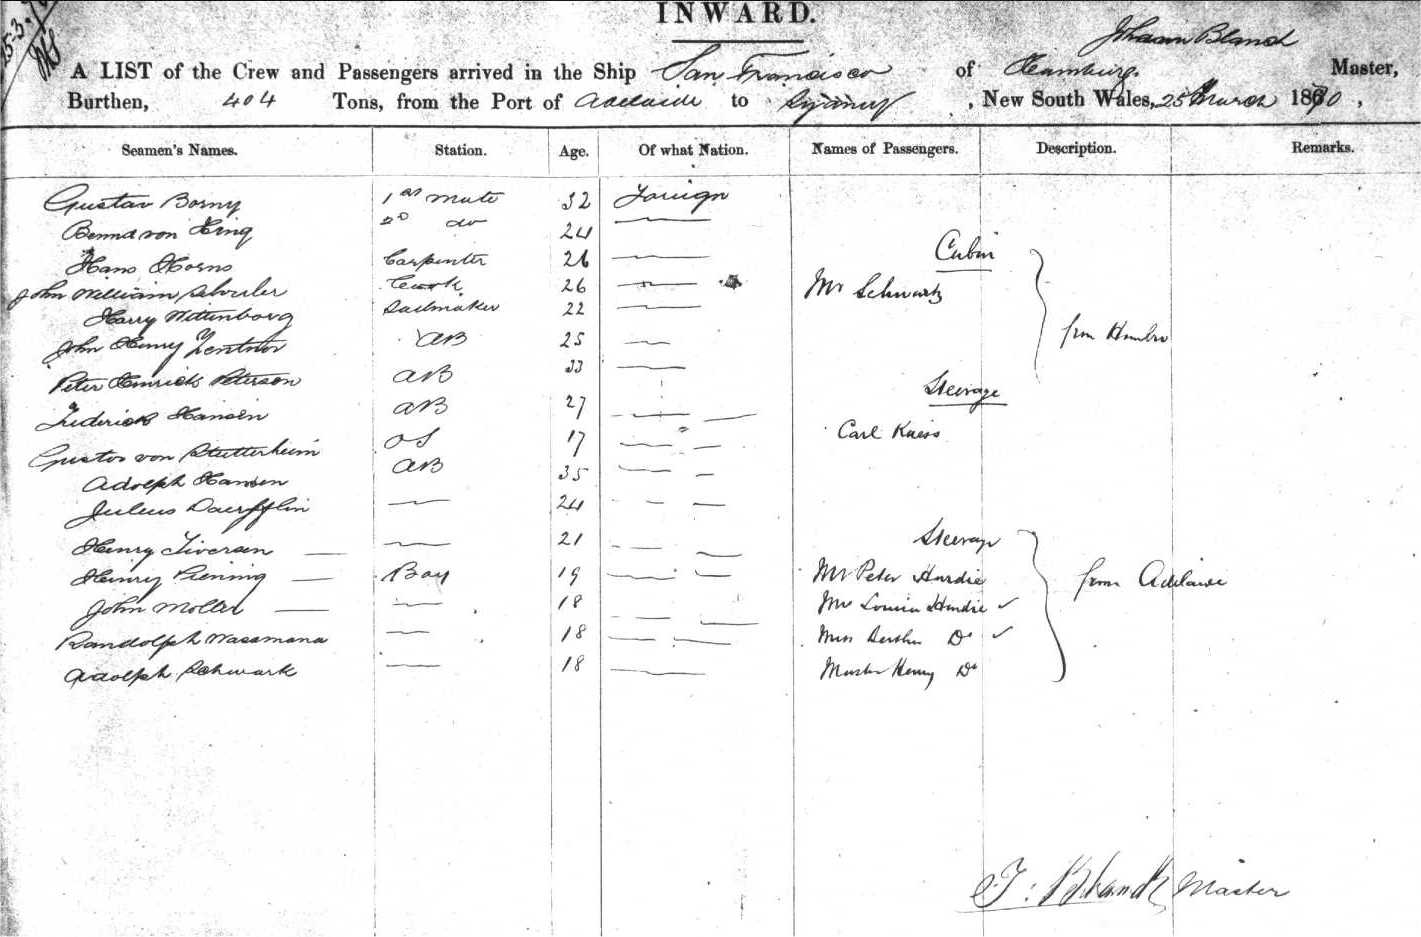 INWARD.
25-3-70
Johann Bland
A LIST of the Crew and Passengers arrived in the Ship San Francisco of Hamburg. Master,
Burthen, 404 Tons, from the Port of Adelaide to Sydney, New South Wales, 25 March 1870,
Seamen's Names. Station. Age. Of what Nation. Names of Passengers. Description. Remarks.
Gustav Borny 1st Mate 32 Foreign
von 2D do 24
Hans Horns Carpenter 26
Cabin
John William Cook 26 Mr Schwartz
Harry Wittenborg Sailmaker 22
John Henry Zentner AB 25 from Hambro
Peter Hinrick Peterson AB 33
Steerage
Frederick Hansen AB 27
Carl Kness
Gustov von Stutterheim OS 17
Adolph Hansen AB 35
Julius 24
Steerage
Henry Tiversen 21
Heinry Piening Boy 19 Mr Peter Hardie from Adelaide
John Moller 18 Mrs Louisa Hardie
Randolph Wasamana 18 Miss Bertha Do
Adolph Schwark 18 Master Henry Do
J: Blandt Master